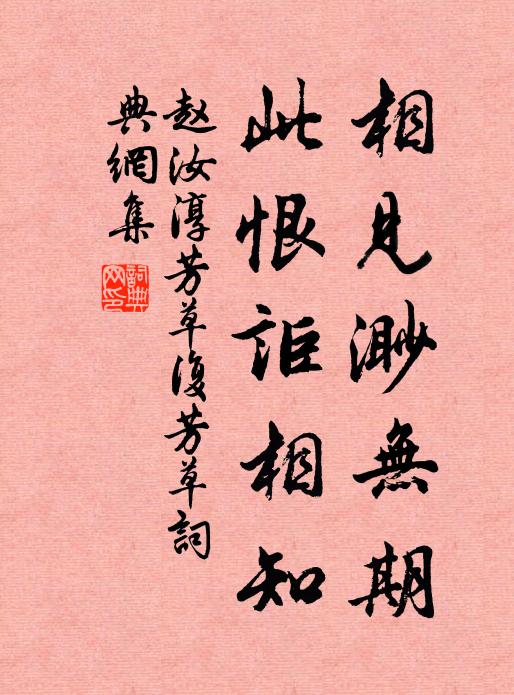 相见渺無期
此恨詎相知
赵汝淳芳草復芳草詞
典網集
詞典網印